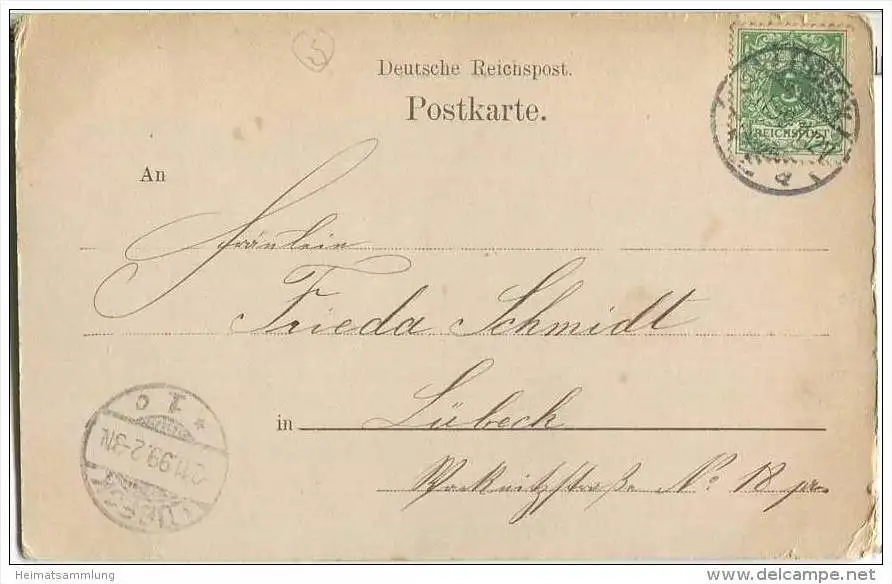 5
Deutsche Reichspost.
Postkarte.
REICHSPOST
An
Fräulein
Frieda Schmidt
in Lübeck
Waknitzstraße No 18 pr.
1 c
11.99.2-3N.
LÜBECK
Heimatsammlung
www.delcampe.net